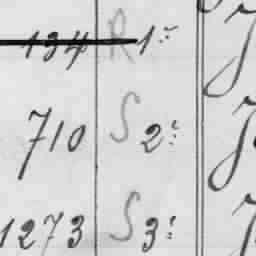 134 R 1:
710 S 2:
1273 S 3: